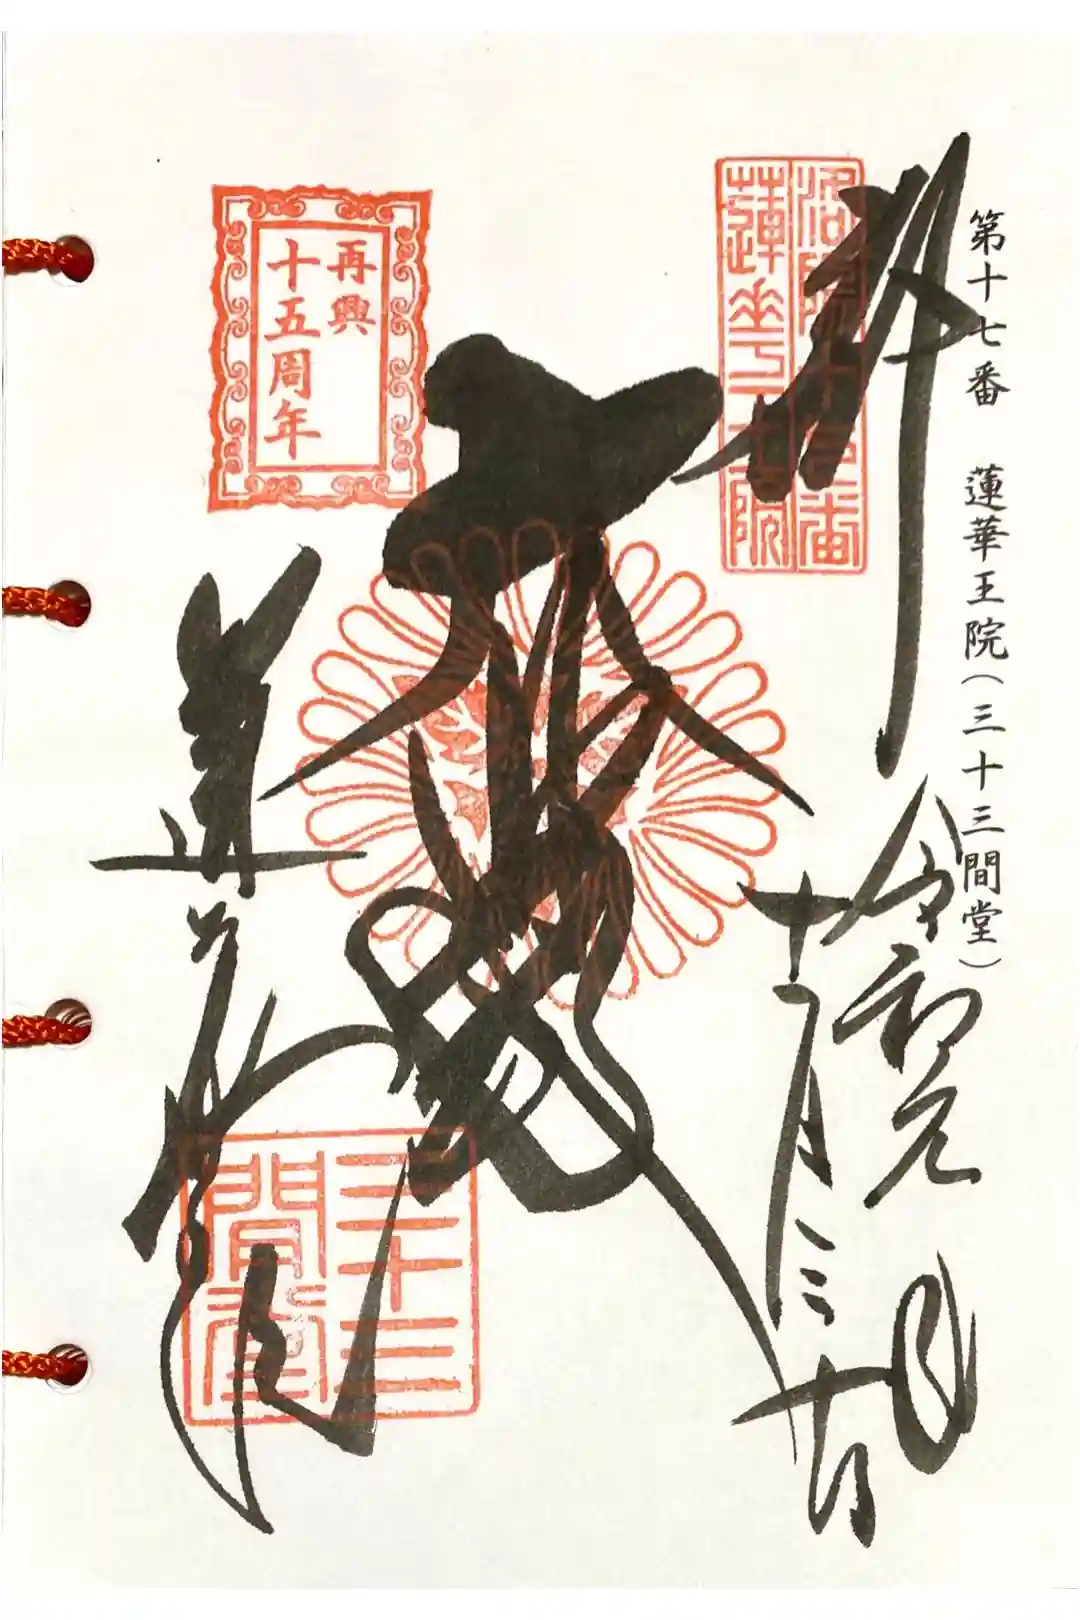 第十七番 蓮華王院(三十三間堂)
奉拝
洛陽十七番
蓮華王院
令和元年
大悲殿
再興
十五周年
蓮華王院
三十三
間堂